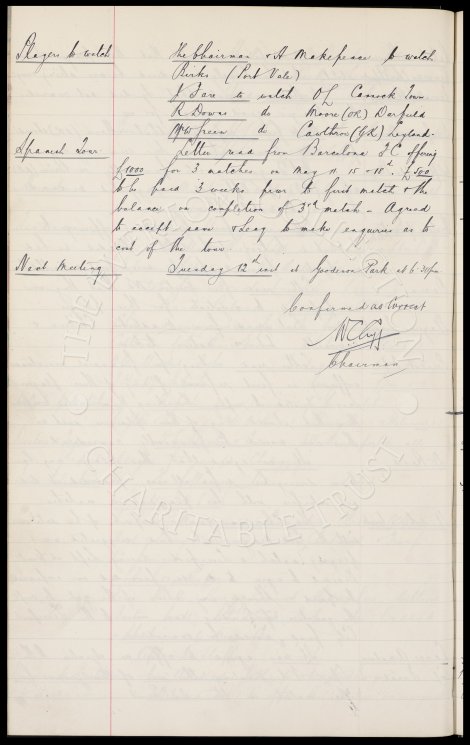 Players to watch The Chairman & H Makepeace to watch
Birks (Port Vale)
J Fare to watch OL Cannock Town
R Downs do Moore (OR) Darfield
W Green do Cawthra (GK) Leyland
Spanish Tour Letter read from Barcelona F C offering
£1000 for 3 matches on May 11 15 & 18th. £500
to be paid 3 weeks prior to first match & the
balance on completion of 3rd match - Agreed
to accept same & Secy to make enquiries as to
cost of the tour.
Next Meeting Tuesday 12th inst at Goodison Park at 6-30pm
Confirmed as Correct
Chairman
CHARITABLE TRUST